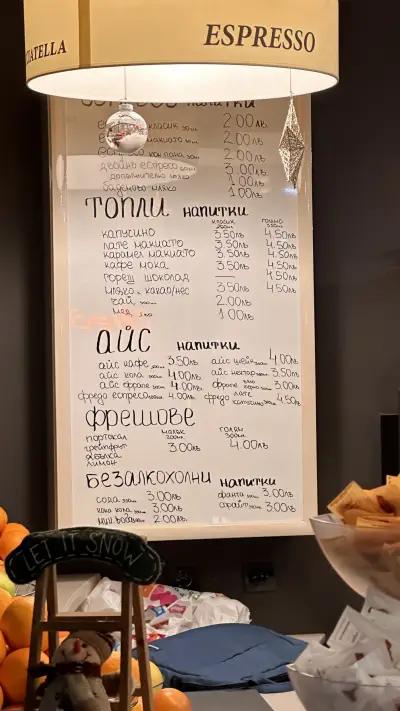 CIATELLA
ESPRESSO
напитки
класик 2.00лв.
макиато 2.00лв.
еспресо кон пана 2.00лв.
двойно еспресо 3.00лв.
допълнително мляко 1.00лв.
бадемово мляко 1.00лв.
ТОПЛИ напитки
класик голямо
капучино 3.50лв. 4.50лв.
лате макиато 3.50лв. 4.50лв.
карамел макиато 3.50лв. 4.50лв.
кафе мока 3.50лв. 4.50лв.
горещ шоколад — 4.50лв.
мляко с какао/нес 3.50лв. 4.50лв.
чай 2.00лв.
мед 1.00лв.
АЙС напитки
айс кафе 3.50лв. айс шейк 4.00лв.
айс кола 4.00лв. айс нектар 3.50лв.
айс фрапе 4.00лв. фрапе 3.00лв.
фредо еспресо 4.00лв. фредо лате капучино 4.50лв.
фрешове
малък голям
портокал
грейпфрут 3.00лв. 4.00лв.
ябълка
лимон
Безалкохолни напитки
сода 3.00лв. фанта 3.00лв.
кока кола 3.00лв. спрайт 3.00лв.
мин. вода 2.00лв.
LET IT SNOW